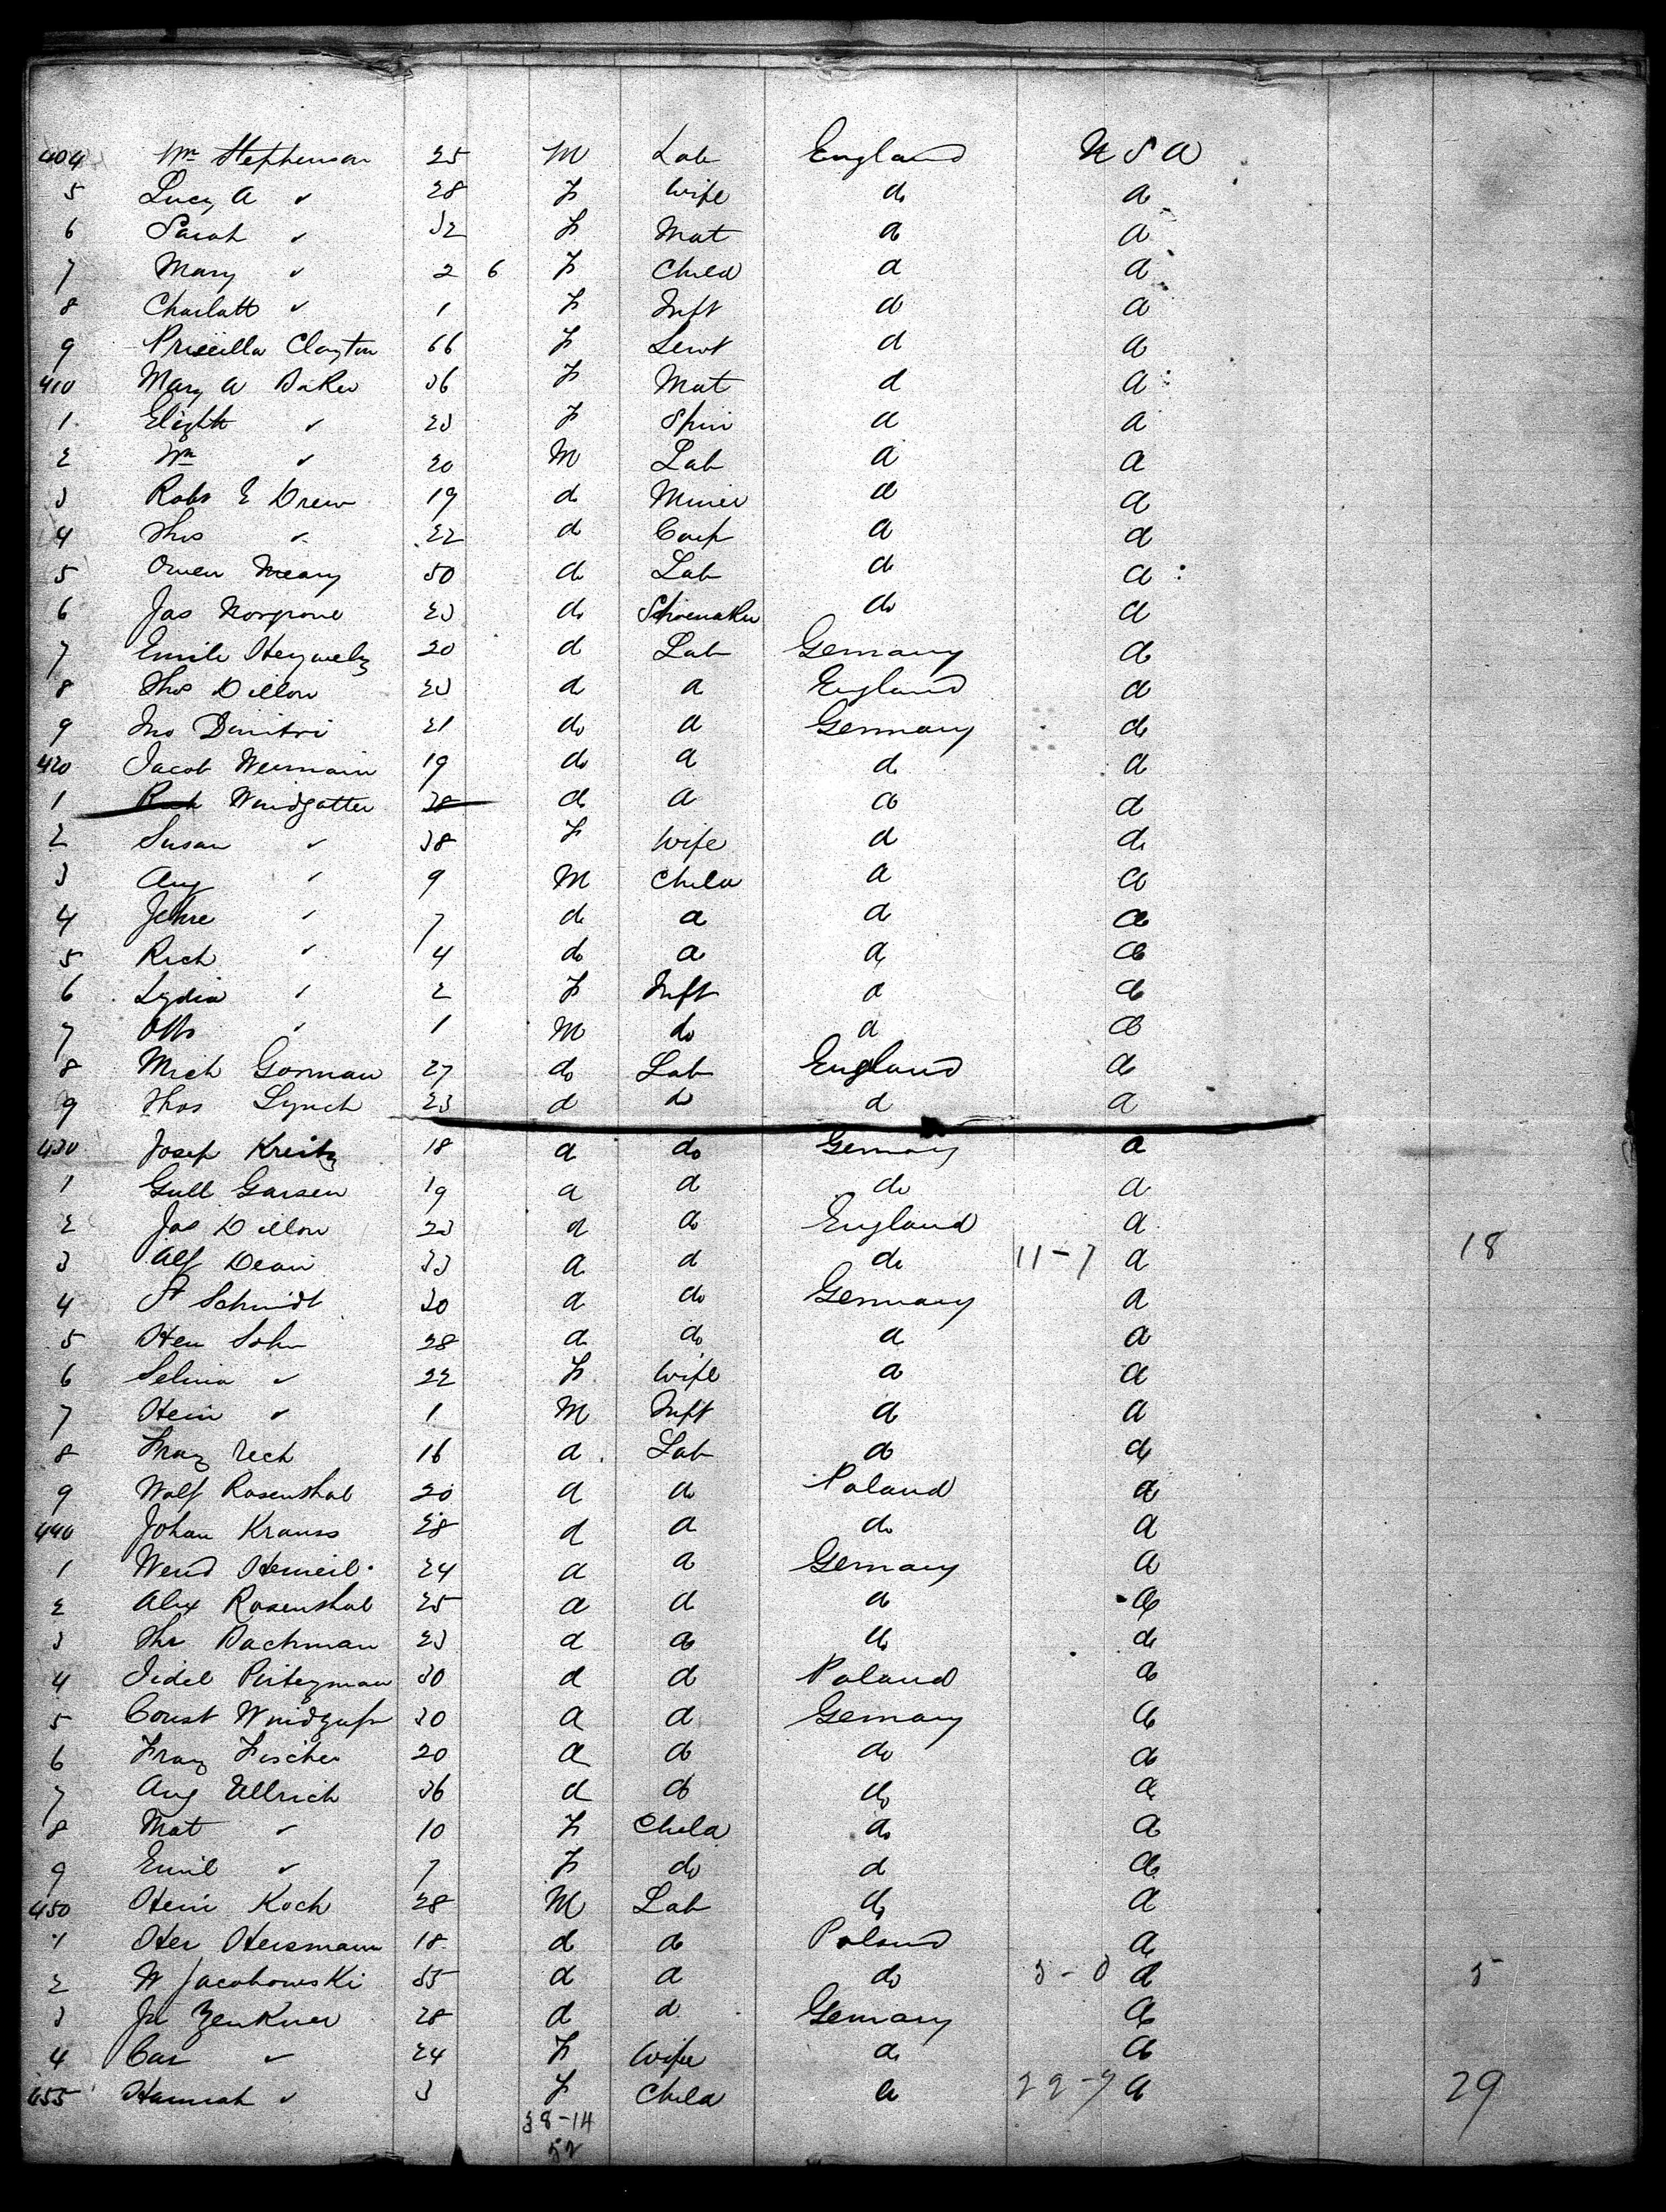 404 Wm Stephenson 25 M Lab England U S A
5 Lucy A " 28 F Wife do do
6 Sarah " 32 F Mat do do
7 Mary " 2 6 F Child do do
8 Charlott " 1 F Inft do do
9 Priscilla Clayton 66 F Servt do do
410 Mary A Baker 36 F Mat do do
1 Elizth " 23 F Spin do do
2 Wm " 20 M Lab do do
3 Robt E Drew 19 do Miner do do
4 Thos " 22 do Carp do do
5 Owen Meany 50 do Lab do do
6 Jas 23 do Shoemaker do do
7 Emile 20 do Lab Germany do
8 Thos Dillon 23 do do England do
9 Jno Dimitri 21 do do Germany do
420 Jacob 19 do do do do
1 Rich Windgatter 38 do do do do
2 Susan " 38 F Wife do do
3 Aug " 9 M Child do do
4 " 7 do do do do
5 Rich " 4 do do do do
6 Lydia " 2 F Inft do do
7 Otto " 1 M do do do
8 Mich Gorman 27 do Lab England do
9 Thos Lynch 23 do do do do
430 Josef Kreitz 18 do do Germany do
1 Gull Garsen 19 do do do do
2 Jas Dillon 23 do do England do
3 Alf Dean 33 do do do 11-7 do 18
4 Schmidt 30 do do Germany do
5 Hen Sohn 28 do do do do
6 Selina " 22 F Wife do do
7 Hein " 1 M Inft do do
8 Franz Uech 16 do Lab do do
9 Wolf Rosenthal 20 do do Poland do
440 Johan Krauss 28 do do do do
1 Wend 24 do do Germany do
2 Alex Rosenthal 25 do do do do
3 Bachman 23 do do do do
4 30 do do Poland do
5 Const 30 do do Germany do
6 Franz Fischer 20 do do do do
7 Aug Ullrich 36 do do do do
8 Mat " 10 F Child do do
9 Emil " 7 F do do do
450 Hein Koch 28 M Lab do do
1 Her Hersmann 18 do do Poland do
2 W Jacobowski 35 do do do 5-0 do 5
3 Zenkner 28 do do Germany do
4 Car " 24 F Wife do do
455 Hannah " 3 F Child do 22-7 do 29
38-14
52